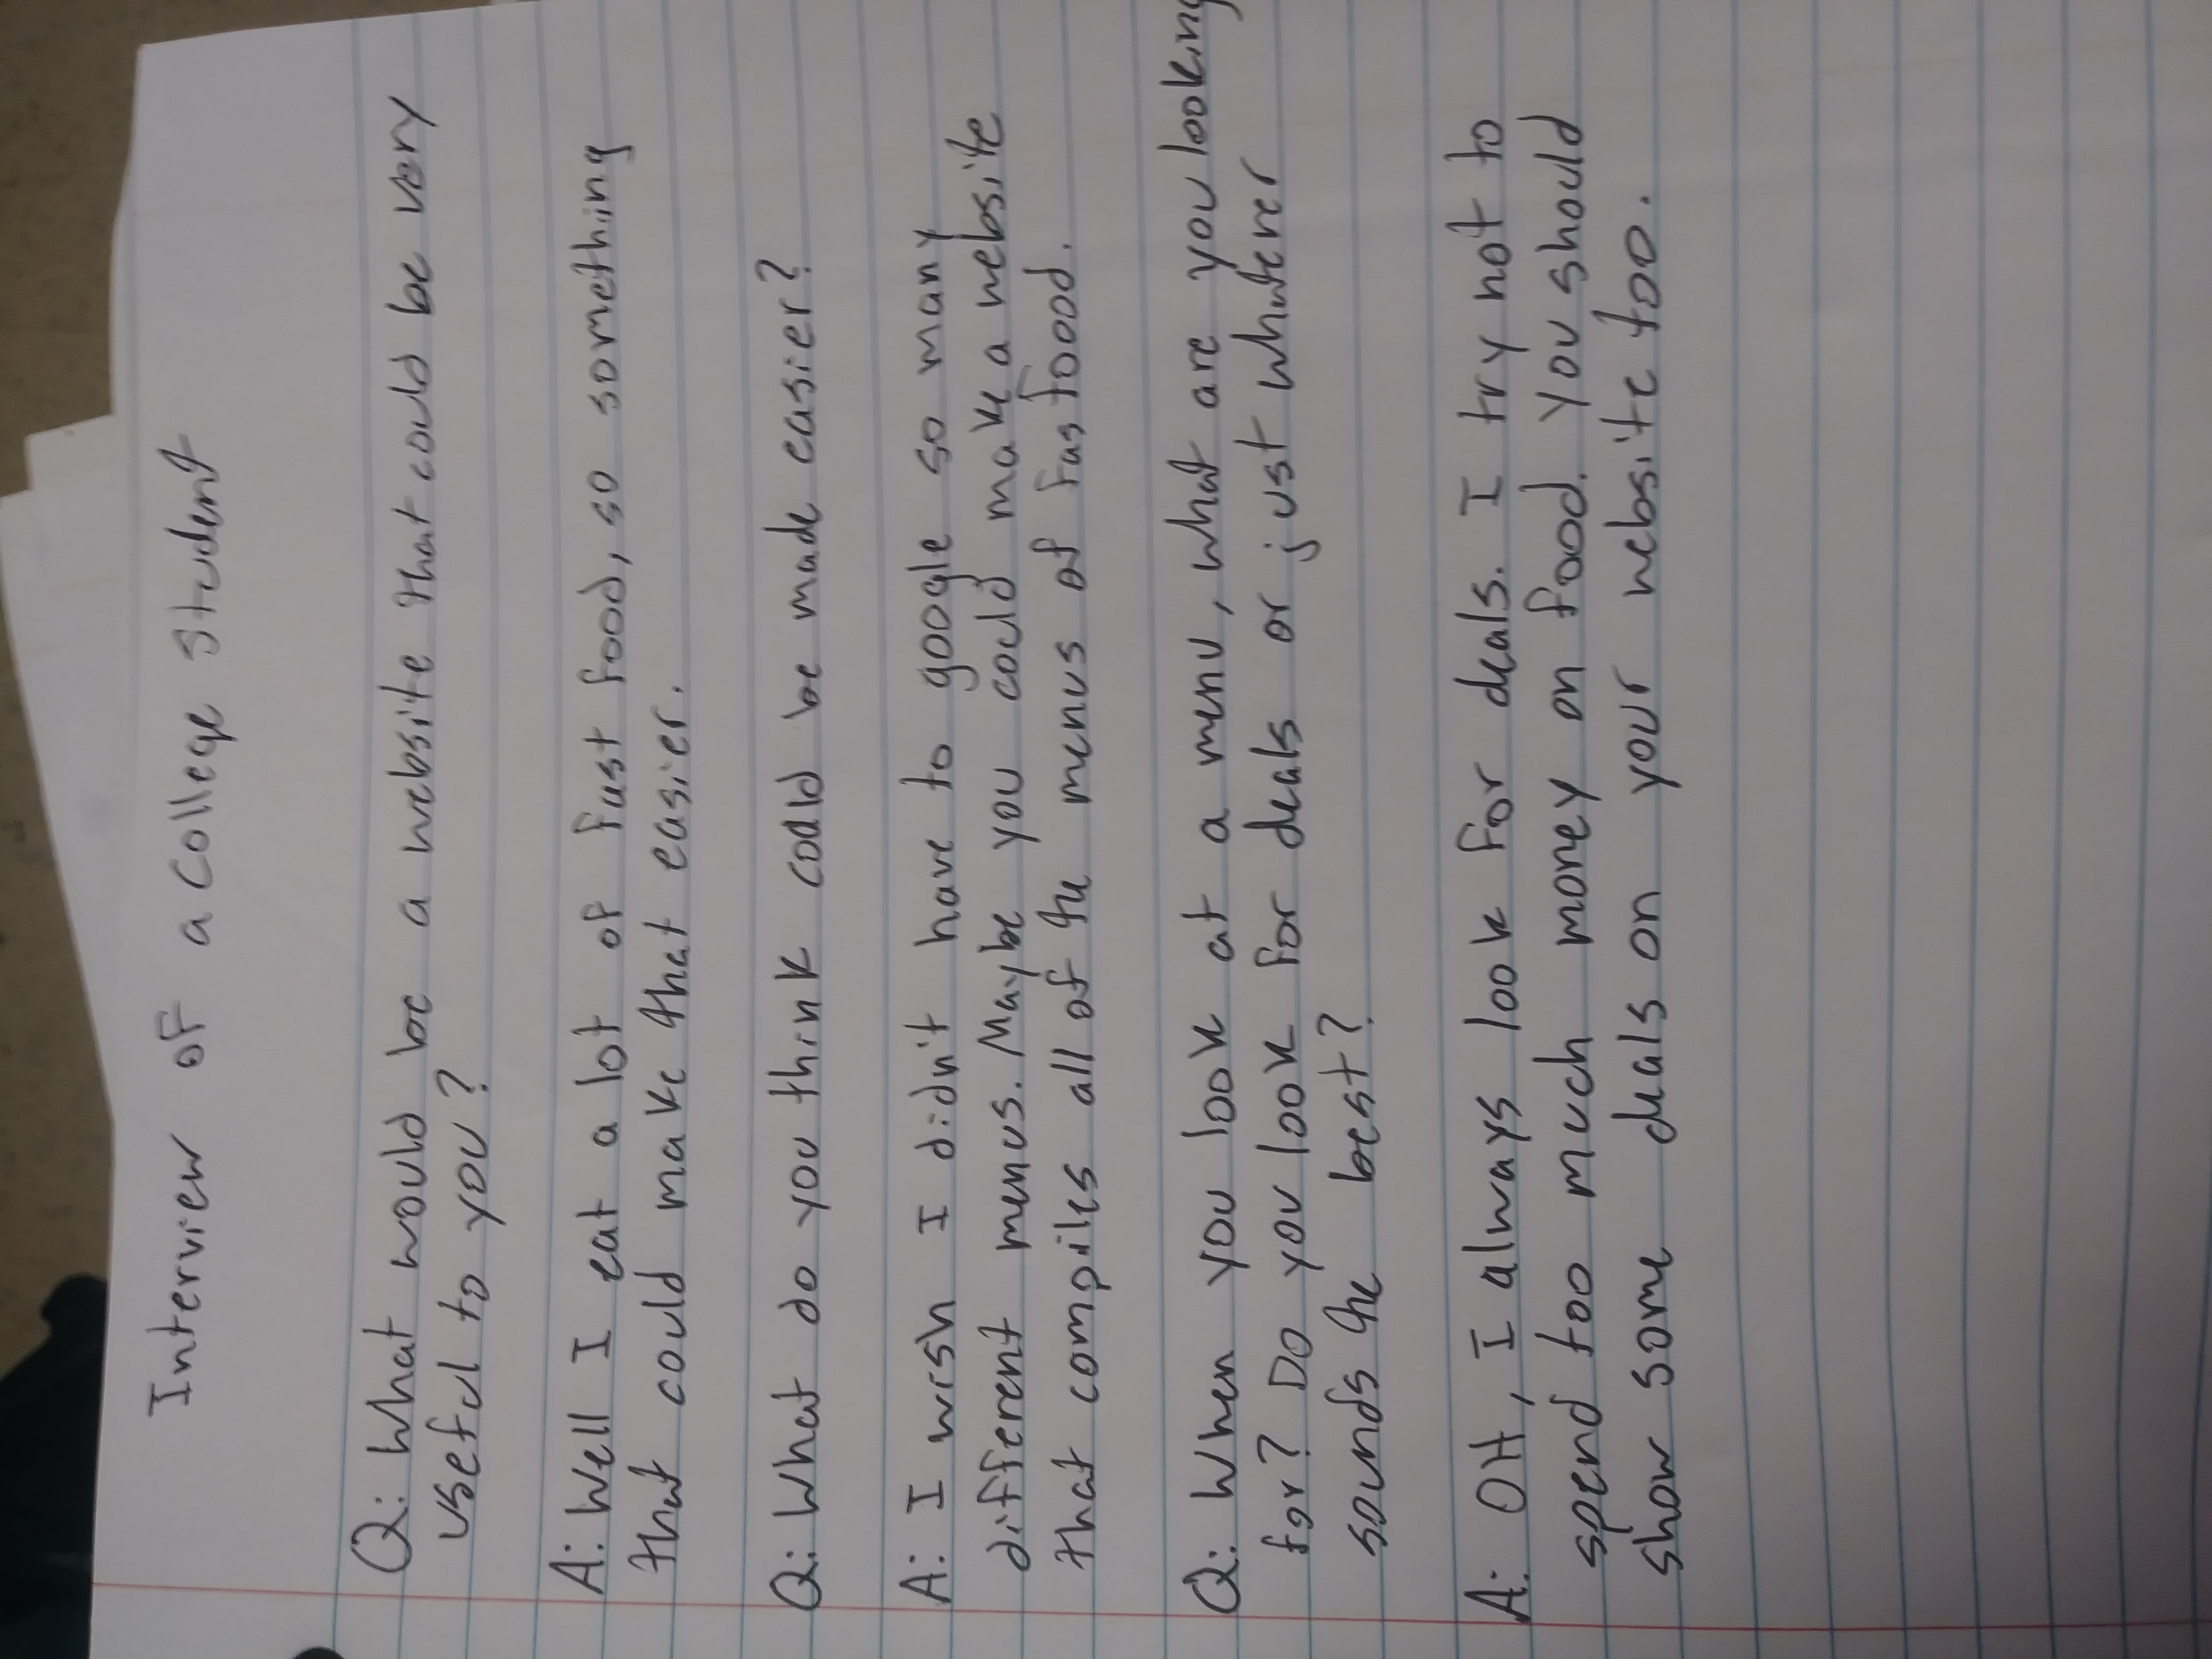 Interview of a College Student
Q: What would be a website that could be very
useful to you?
A: Well I eat a lot of fast food, so something
that could make that easier.
Q: What do you think could be made easier?
A: I wish I didn't have to google so many
different menus. Maybe you could make a website
that compiles all of the menus of fastfood.
Q: When you look at a menu, what are you looking
for? Do you look for deals or just whatever
sounds the best?
A: OH, I always look for deals. I try not to
spend too much money on food. You should
show some deals on your website too.